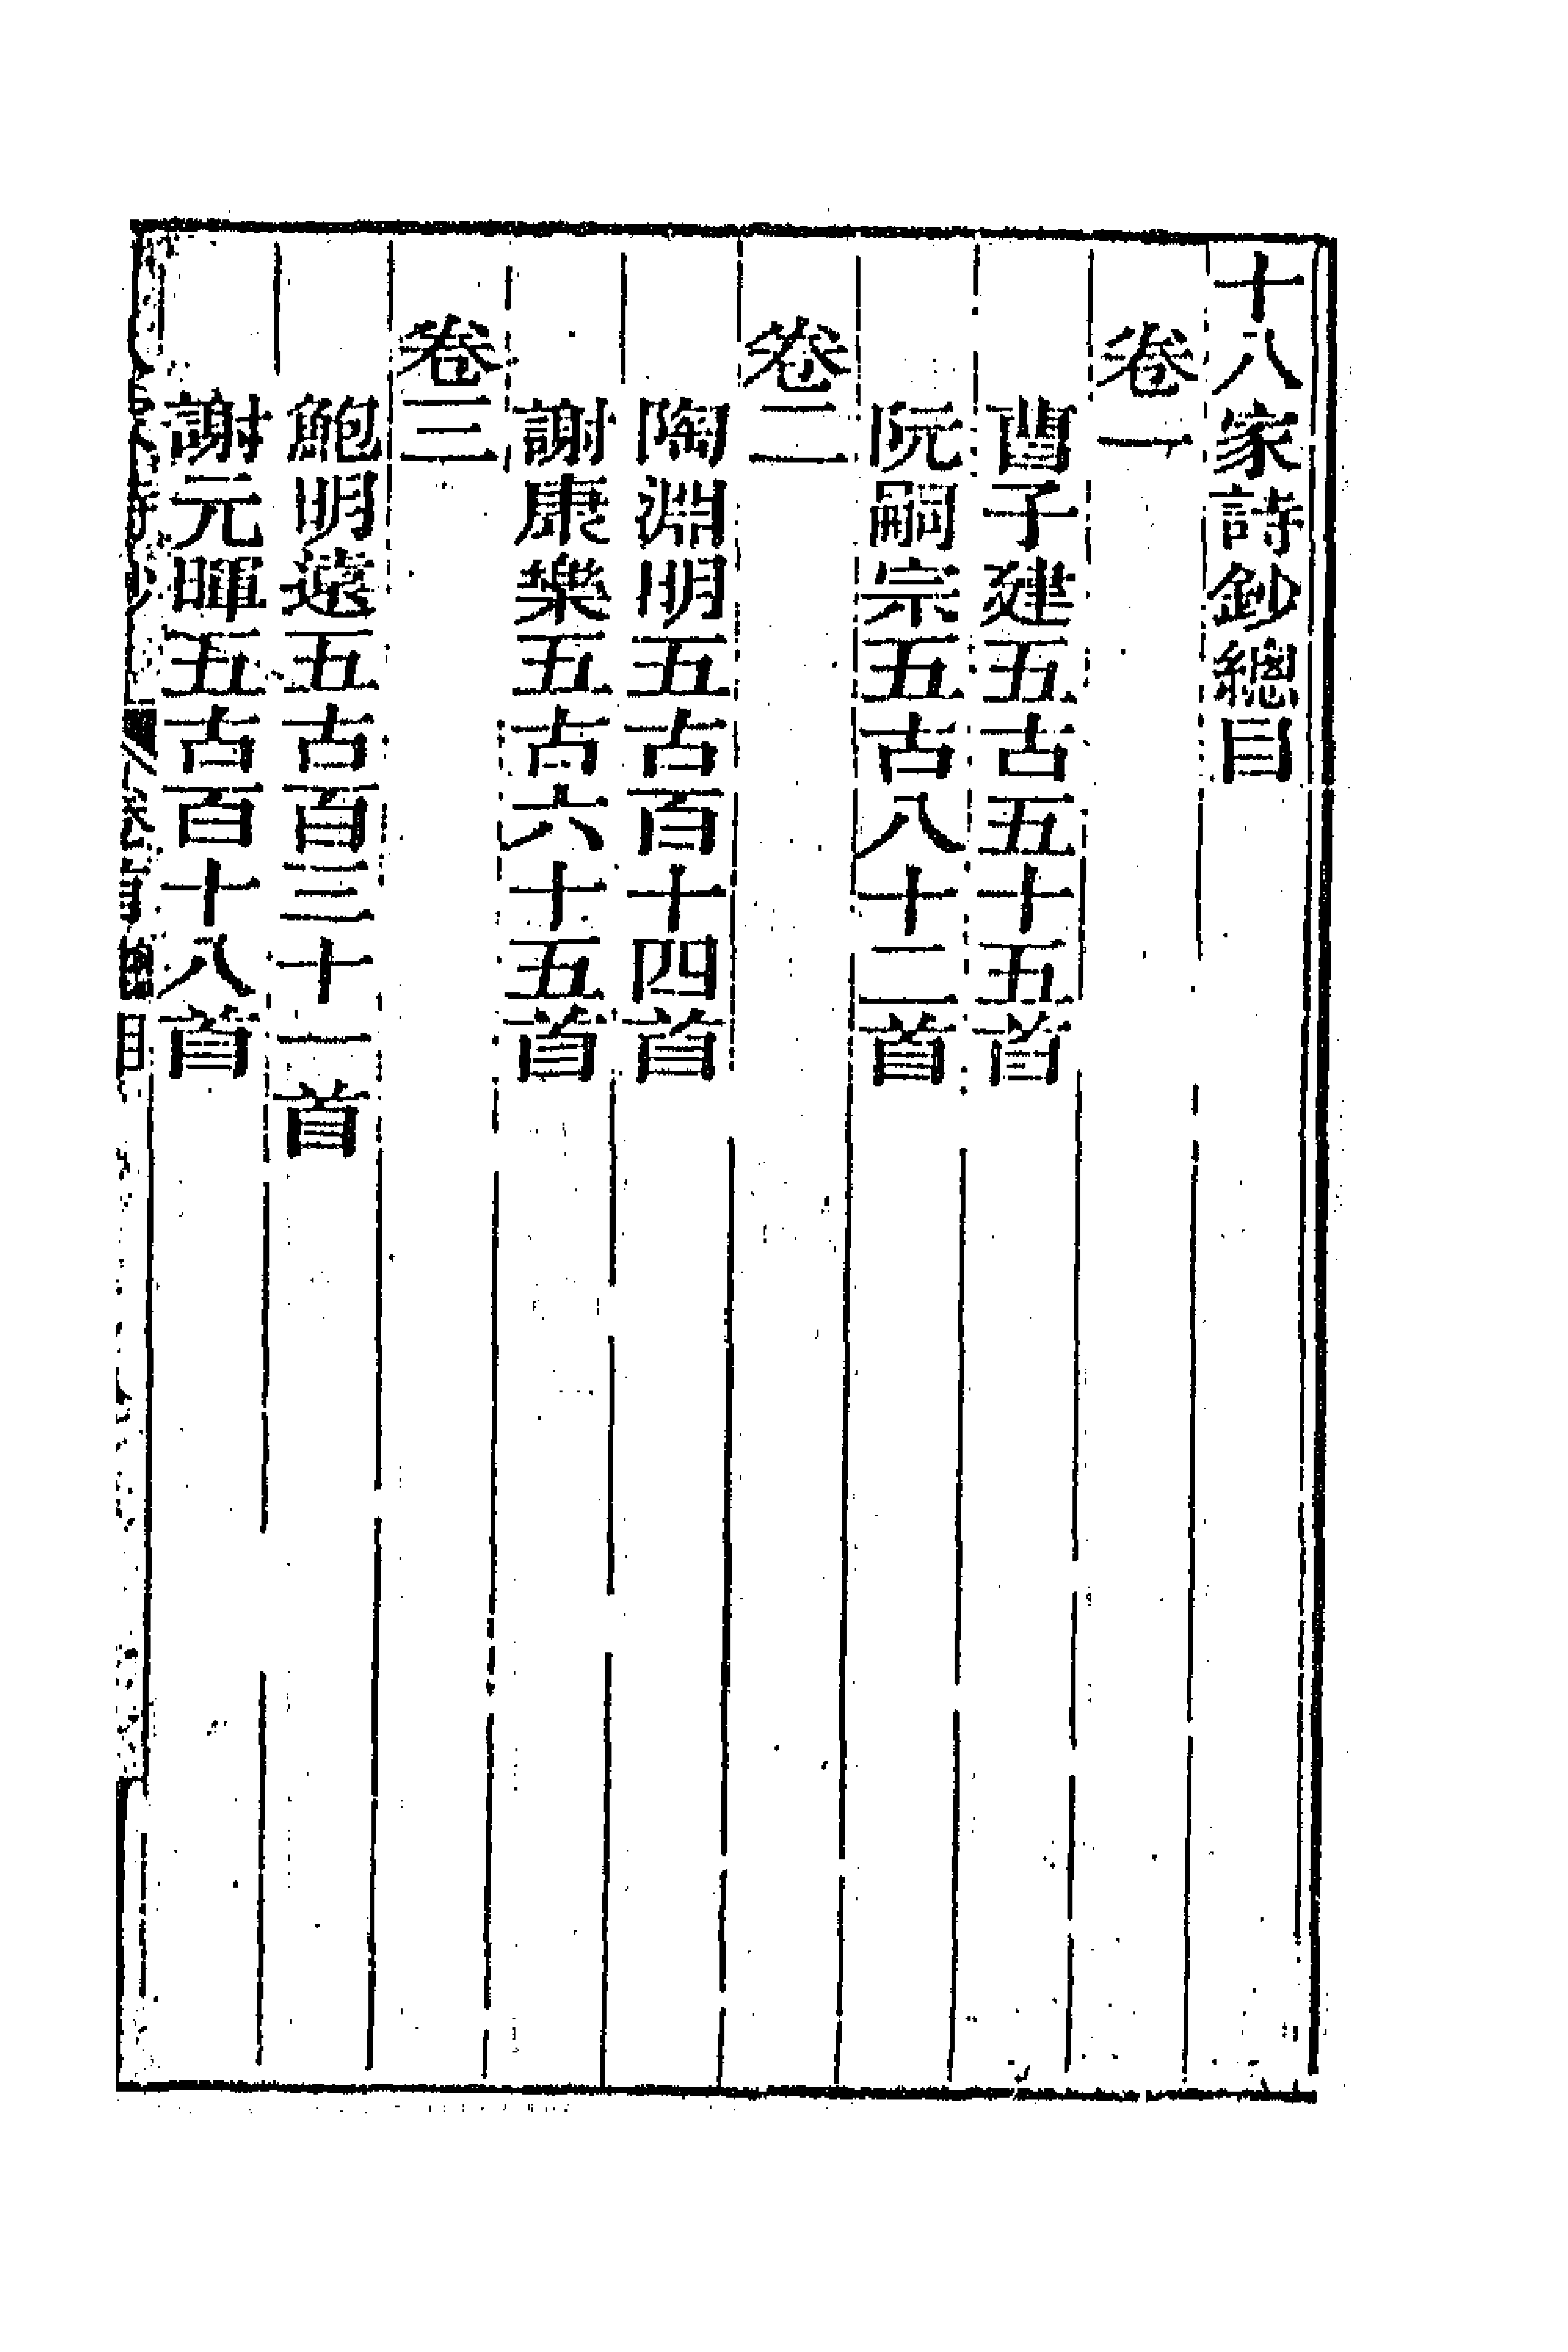 十八家詩鈔總目
卷一
曹子建五古五十五首
阮嗣宗五古八十二首
卷二
陶淵明五古百十四首
謝康樂五古六十五首
卷三
鮑明遠五古百三十一首
謝元暉五古百十八首